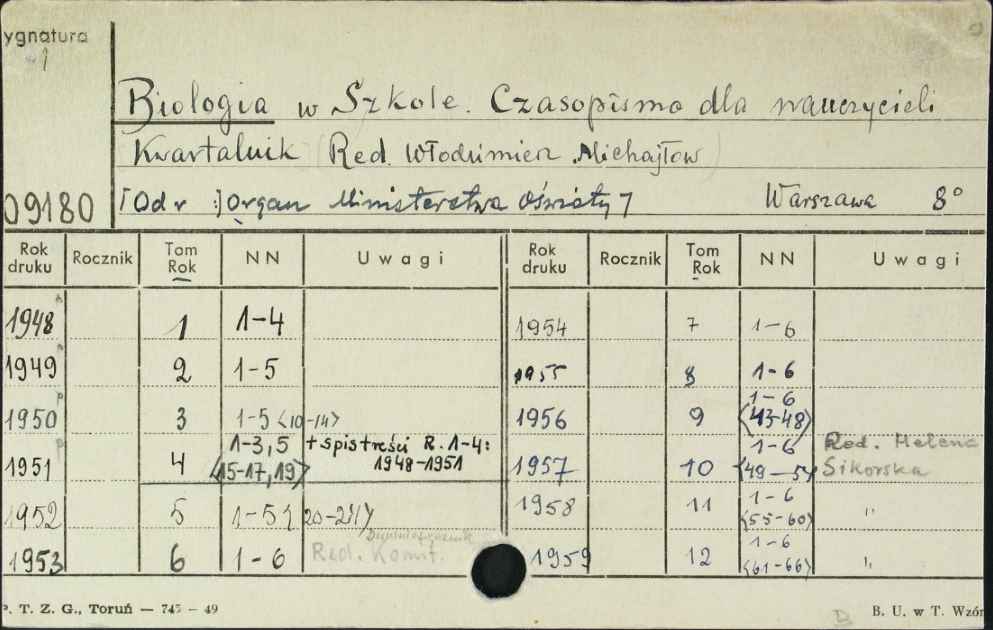 ygnatura
Biologia w Szkole. Czasopismo dla nauczycieli
Kwartalnik (Red. Włodzimierz Michajłow)
09180 [Od r :] Organ Ministerstwa Oświaty] Warszawa 8°
Rok druku Rocznik Tom Rok NN Uwagi Rok druku Rocznik Tom Rok NN Uwagi
1948 1 1-4 1954 7 1-6
1949 2 1-5 1955 8 1-6
1950 3 1-5 <10-14> 1956 9 1-6 <43-48>
1951 4 1-3,5 <15-17,19> + spis treści R. 1-4: 1948-1951 1957 10 1-6 <49-54> Red. Helena Sikorska
1952 5 1-5 <20-24> 1958 11 1-6 <55-60> "
1953 6 1-6 Dwumiesięcznik Red. Komit. 1959 12 1-6 <61-66> "
P. T. Z. G., Toruń — 745 — 49 B. U. w T. Wzór